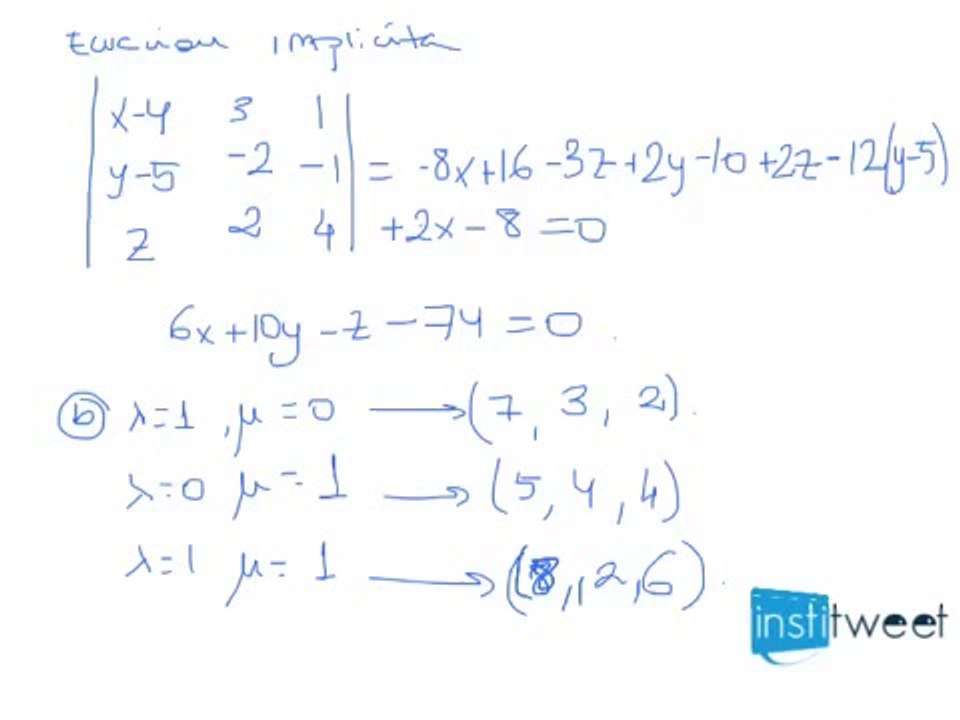 Ecuacion implicita
| x-4 3 1 |
| y-5 -2 -1 | = -8x+16 -3z +2y -10 +2z -12(y-5)
| z 2 4 | +2x - 8 = 0
6x+10y - z - 74 = 0.
ⓑ λ=1, μ=0 → (7, 3, 2).
λ=0 μ=1 → (5, 4, 4)
λ=1 μ=1 → (8, 2, 6).
institweet